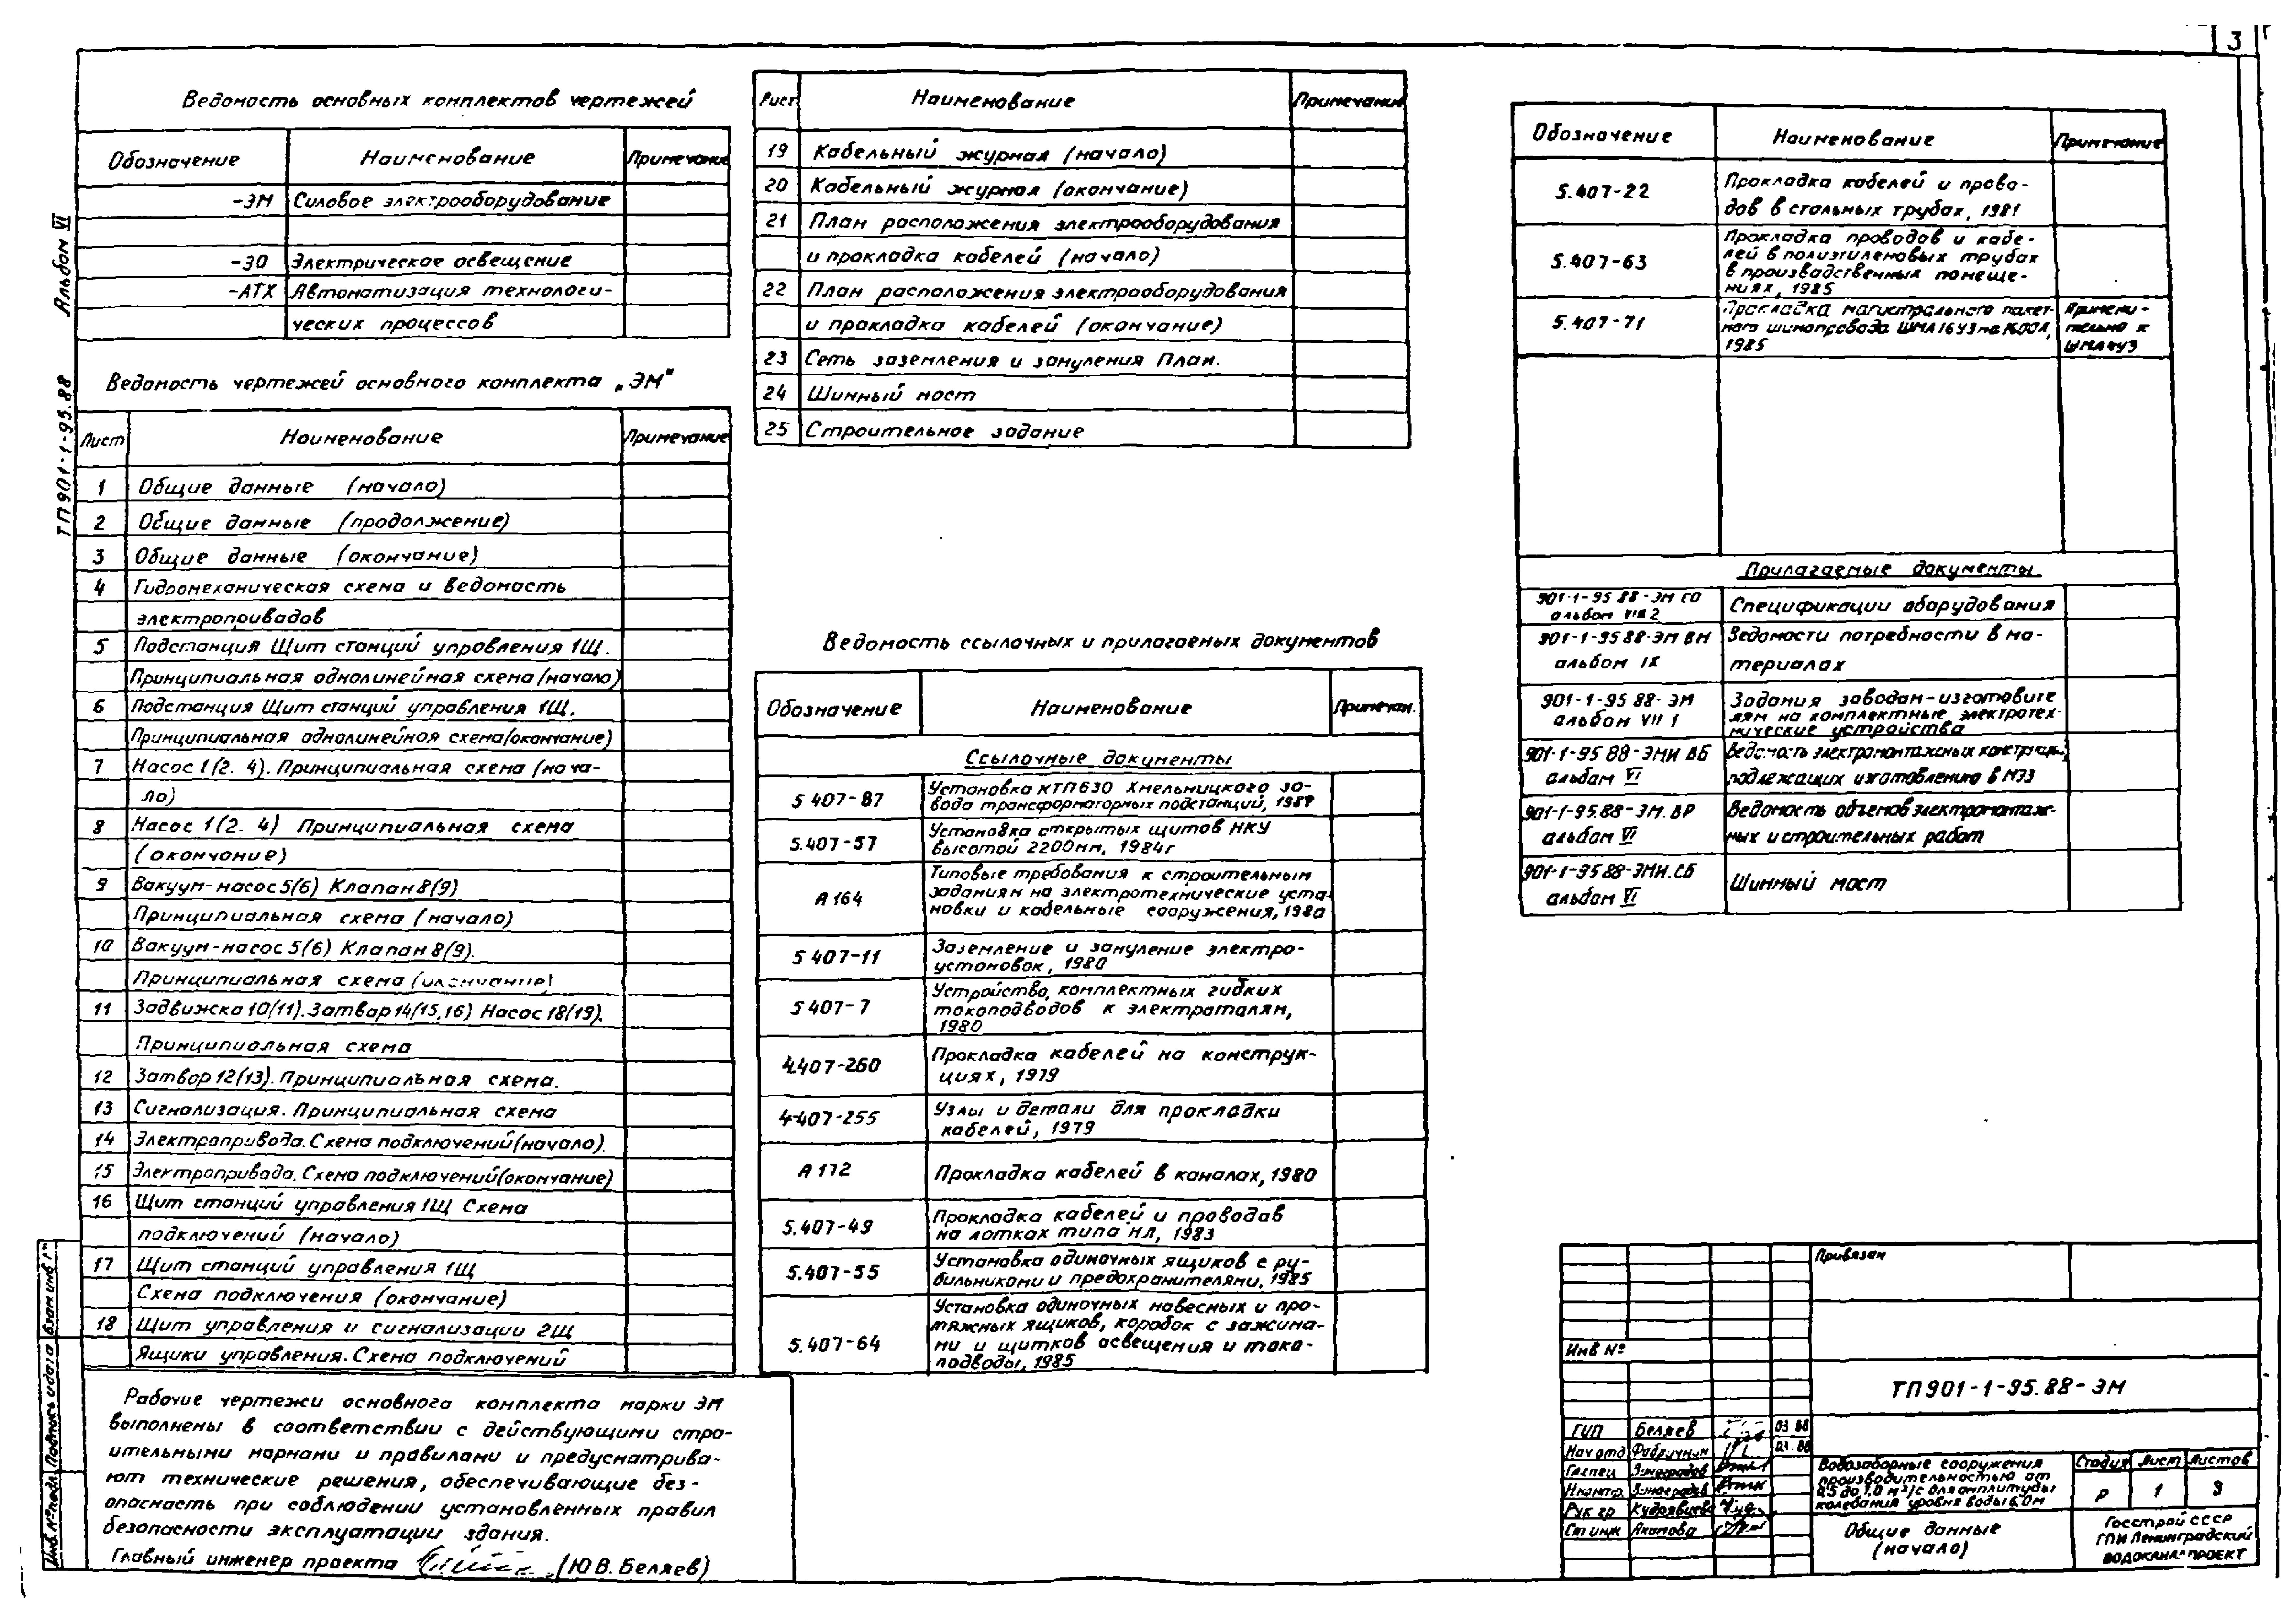 3
Альбом VI
ТП 901-1-95.88
Ведомость основных комплектов чертежей
Обозначение Наименование Примечание
-ЭМ Силовое электрооборудование
-ЭО Электрическое освещение
-АТХ Автоматизация технологи-
ческих процессов
Ведомость чертежей основного комплекта „ЭМ"
Лист Наименование Примечание
1 Общие данные (начало)
2 Общие данные (продолжение)
3 Общие данные (окончание)
4 Гидромеханическая схема и ведомость
электроприводов
5 Подстанция Щит станций управления 1Щ.
Принципиальная однолинейная схема (начало)
6 Подстанция Щит станций управления 1Щ.
Принципиальная однолинейная схема (окончание)
7 Насос 1(2. 4). Принципиальная схема (нача-
ло)
8 Насос 1(2. 4) Принципиальная схема
(окончание)
9 Вакуум-насос 5(6) Клапан 8(9)
Принципиальная схема (начало)
10 Вакуум-насос 5(6) Клапан 8(9).
Принципиальная схема (окончание)
11 Задвижка 10(11). Затвор 14(15,16) Насос 18(19).
Принципиальная схема
12 Затвор 12(13). Принципиальная схема.
13 Сигнализация. Принципиальная схема
14 Электропривода. Схема подключений (начало).
15 Электропривода. Схема подключений (окончание)
16 Щит станций управления 1Щ Схема
подключений (начало)
17 Щит станций управления 1Щ
Схема подключения (окончание)
18 Щит управления и сигнализации 2Щ
Ящики управления. Схема подключений
Рабочие чертежи основного комплекта марки ЭМ
выполнены в соответствии с действующими стро-
ительными нормами и правилами и предусматрива-
ют технические решения, обеспечивающие без-
опасность при соблюдении установленных правил
безопасности эксплуатации здания.
Главный инженер проекта (Ю В. Беляев)
Инв. № подл. Подпись и дата Взам инв №
Лист Наименование Примечание
19 Кабельный журнал (начало)
20 Кабельный журнал (окончание)
21 План расположения электрооборудования
и прокладка кабелей (начало)
22 План расположения электрооборудования
и прокладка кабелей (окончание)
23 Сеть заземления и зануления План.
24 Шинный мост
25 Строительное задание
Ведомость ссылочных и прилагаемых документов
Обозначение Наименование Примечан.
Ссылочные документы
5 407-87 Установка КТП 630 Хмельницкого за-
вода трансформаторных подстанций,
5.407-57 Установка открытых щитов НКУ
высотой 2200мм, 1984г
А 164 Типовые требования к строительным
заданиям на электротехнические уста-
новки и кабельные сооружения, 1980
5 407-11 Заземление и зануление электро-
установок, 1980
5 407-7 Устройство комплектных гибких
токоподводов к электроталям,
1980
4.407-260 Прокладка кабелей на конструк-
циях, 1979
4-407-255 Узлы и детали для прокладки
кабелей, 1979
А 172 Прокладка кабелей в каналах, 1980
5.407-49 Прокладка кабелей и проводов
на лотках типа НЛ, 1983
5.407-55 Установка одиночных ящиков с ру-
бильниками и предохранителями, 1985
5.407-64 Установка одиночных навесных и про-
тяжных ящиков, коробок с зажима-
ми и щитков освещения и токо-
подводы, 1985
Обозначение Наименование Примечание
5.407-22 Прокладка кабелей и прово-
дов в стальных трубах, 1981
5.407-63 Прокладка проводов и кабе-
лей в полиэтиленовых трубах
в производственных помеще-
ниях, 1985
5.407-71 Прокладка магистрального пакет- Примени-
ного шинопровода ШМА16УЗ на 1600А, тельно к
1985 ШМА4УЗ
Прилагаемые документы
901-1-95 88-ЭМ СО Спецификации оборудования
альбом VIII 2
901-1-95 88-ЭМ ВМ Ведомости потребности в ма-
альбом IX териалах
901-1-95 88-ЭМ Задания заводам-изготовите
альбом VII 1 лям на комплектные электротех-
нические устройства
901-1-95 88-ЭМИ ВБ Ведомость электромонтажных конструкций,
альбом VI подлежащих изготовлению в МЭЗ
901-1-95.88-ЭМ.ВР Ведомость объемов электромонтаж-
альбом VI ных и строительных работ
901-1-95 88-ЭМИ.СБ Шинный мост
альбом VI
Привязан
Инв №
ТП 901-1-95.88-ЭМ
ГИП Беляев 03 88
Нач отд 03.88
Гл спец Виноградов
Н.контр. Виноградов
Рук гр Кудрявцева
Ст инж Акимова
Водозаборные сооружения
производительностью от
0,5 до 1,0 м³/с для амплитуды
колебания уровня воды 6,0м
Стадия Лист Листов
Р 1 3
Общие данные
(начало)
Госстрой СССР
ГПИ Ленинградский
ВОДОКАНАЛПРОЕКТ